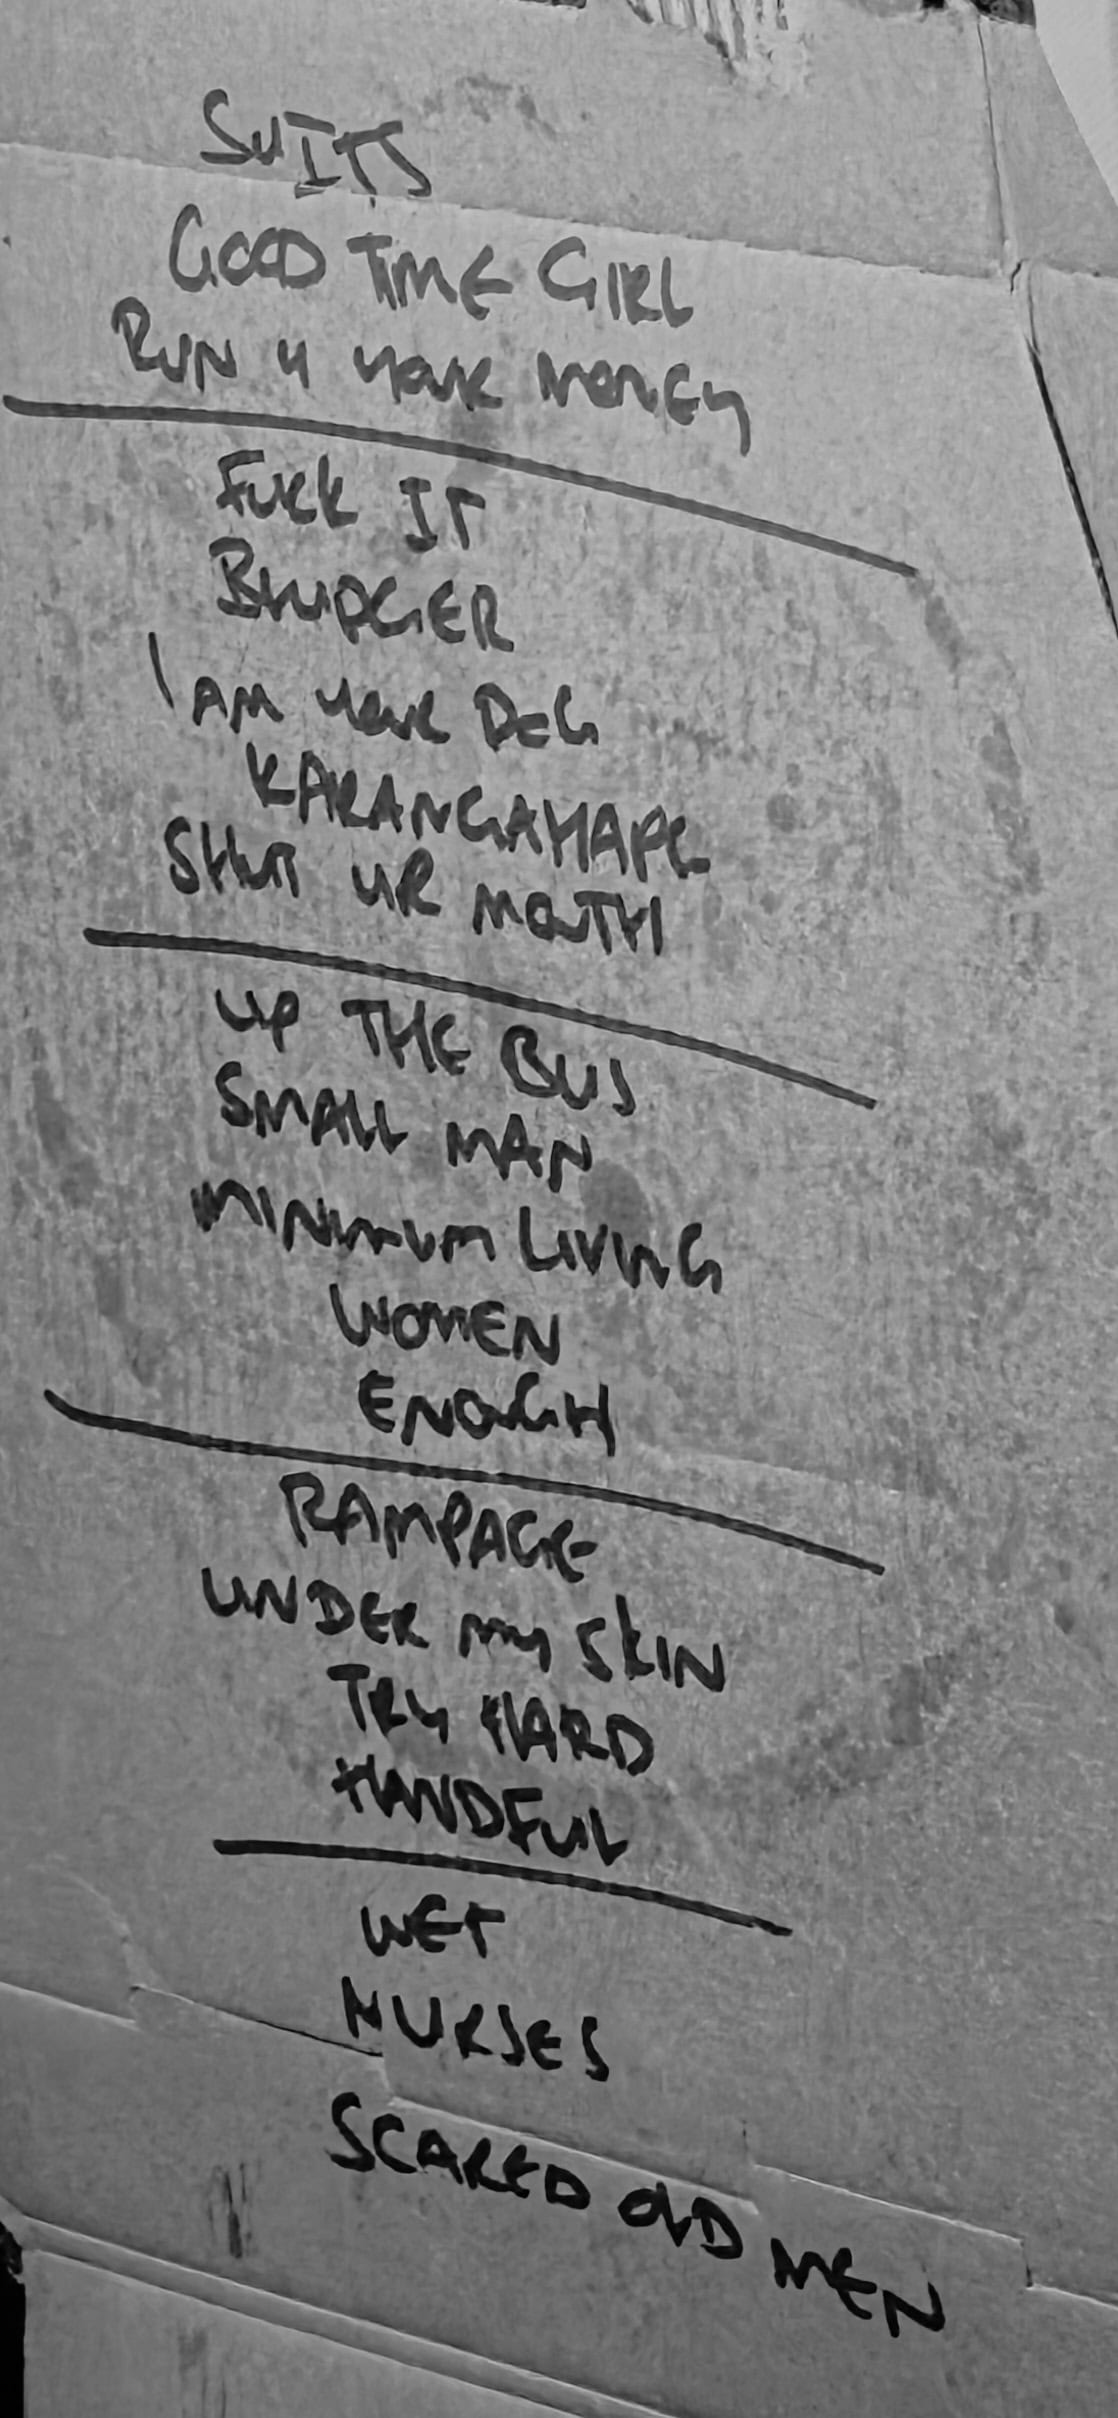 SUITS
GOOD TIME GIRL
RUN 4 YOUR MONEY
FUCK IT
BLUDGER
I AM YOUR DOG
KARANGAHAPE
SHUT UR MOUTH
UP THE BUS
SMALL MAN
MINIMUM LIVING
WOMEN
ENOUGH
RAMPAGE
UNDER MY SKIN
TRY HARD
HANDFUL
WET
NURSES
SCARED OLD MEN